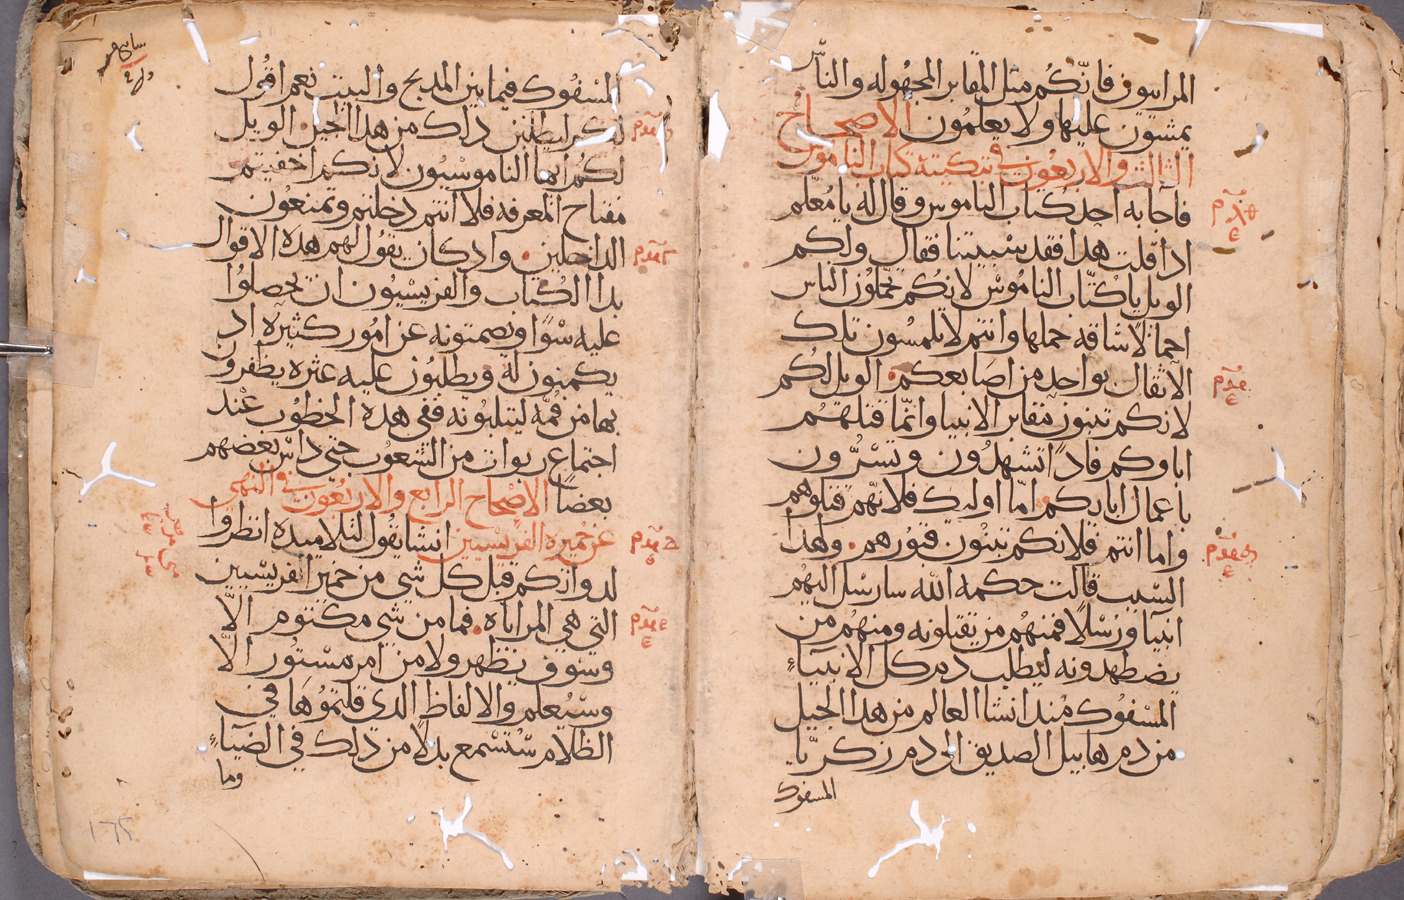 المراييون فانكم مثل المقابر المجهوله والناس
يمشون عليها ولا يعلمون الاصحاح
الثالث والاربعون في تبكيته كتاب الناموس
فاجابه احد كتاب الناموس وقال له يا معلم
اذا قلت هذا فقد سبيتنا فقال ولكم
الويل يا كتاب الناموس لانكم تحملون الناس
احمالا شاقه حملها وانتم لا تلمسون تلك
الاثقال بواحد من اصابعكم الويل لكم
لانكم تبنون مقابر الانبيا وانما قتلهم
اباوكم فاذا تشهدون وتسرون
باعمال ابايكم اما اوليك فلانهم قتلوهم
واما انتم فلانكم تبنون قبورهم وهذا
السبب قالت حكمه الله سارسل اليهم
انبيا ورسلا فمنهم من يقتلونه ومنهم من
يضطهدونه ليطلب دم كل الانبياء
المسفوك منذ انشا العالم من هذا الجيل
من دم هابيل الصديق الى دم زكريا
المسفوك
المسفوك فيما بين المذبح والبيت نعم اقول
لكم ليطلبن ذلك من هذا الجيل الويل
لكم ايها الناموسيون لانكم اخفيتم
مفتاح المعرفه فلا انتم دخلتم وتمنعون
الداخلين واذ كان يقول لهم هذه الاقوال
بدا الكتاب والفريسيون ان يحصلوا
عليه سوا ويصمتونه عن امور كثيره اذ
يكمنون له ويطلبون عليه عثره يظفرون
بها من فمه ليثلبونه ففي هذه الخطوب عند
اجتماع ربوات من الشعوب حتى داس بعضهم
بعضا الاصحاح الرابع والاربعون في النهي
عن خميرة الفريسيين انشا يقول لتلاميذه انظروا
لذواتكم قبل كل شي من خمير الفريسيين
التي هي المراياه فما من شي مكتوم الا
وسوف يظهر ولا من امر مستور الا
وسيعلم والالفاظ الذي قلتموها في
الظلام ستسمع بدلا من ذلك في الضياء
وما
١٦٥